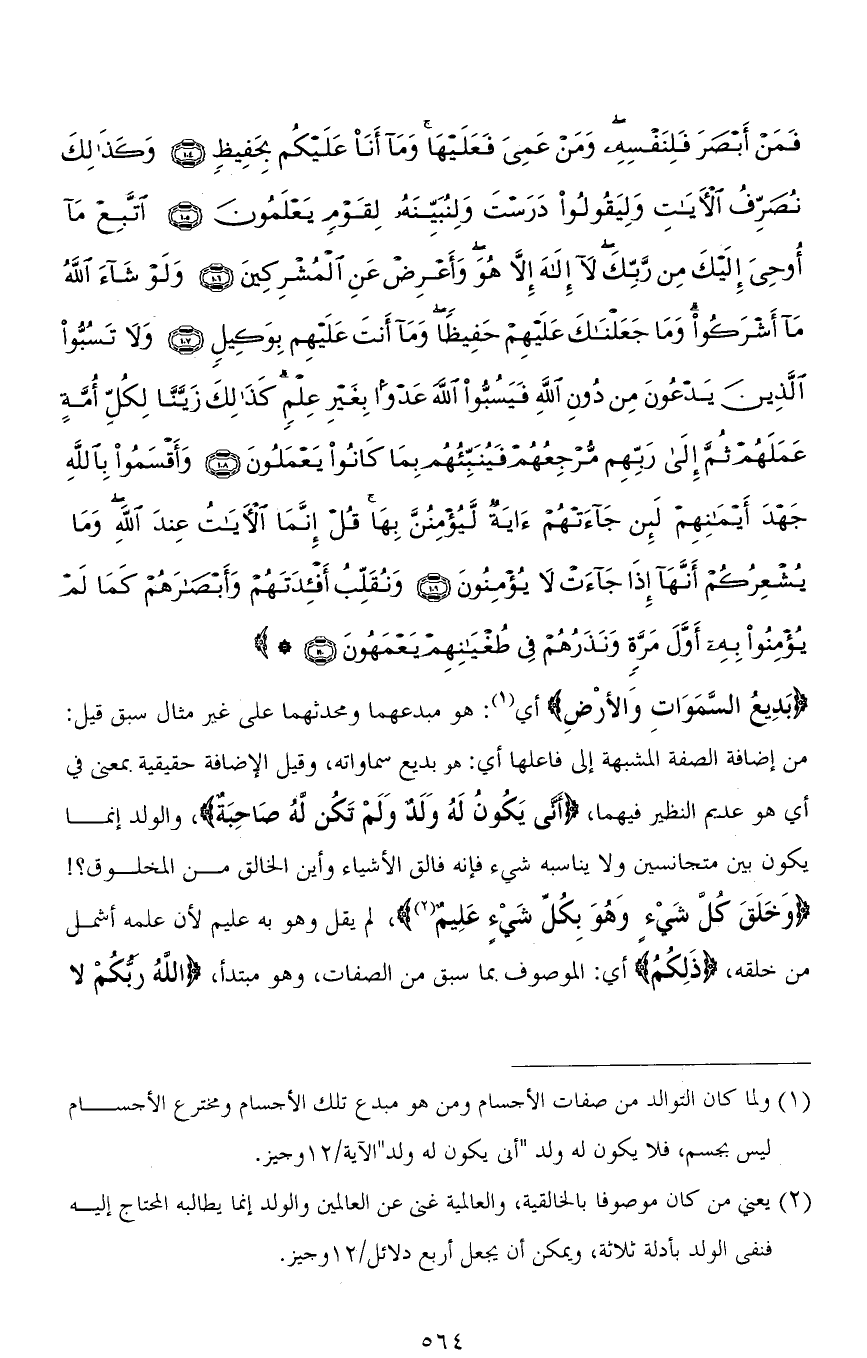 فَمَنْ أَبْصَرَ فَلِنَفْسِهِۦ ۖ وَمَنْ عَمِىَ فَعَلَيْهَا ۚ وَمَآ أَنَا۠ عَلَيْكُم بِحَفِيظٍ ١٠٤ وَكَذَٰلِكَ
نُصَرِّفُ ٱلْأَيَـٰتِ وَلِيَقُولُوا۟ دَرَسْتَ وَلِنُبَيِّنَهُۥ لِقَوْمٍ يَعْلَمُونَ ١٠٥ ٱتَّبِعْ مَآ
أُوحِىَ إِلَيْكَ مِن رَّبِّكَ ۖ لَآ إِلَـٰهَ إِلَّا هُوَ ۖ وَأَعْرِضْ عَنِ ٱلْمُشْرِكِينَ ١٠٦ وَلَوْ شَآءَ ٱللَّهُ
مَآ أَشْرَكُوا۟ ۗ وَمَا جَعَلْنَـٰكَ عَلَيْهِمْ حَفِيظًا ۖ وَمَآ أَنتَ عَلَيْهِم بِوَكِيلٍ ١٠٧ وَلَا تَسُبُّوا۟
ٱلَّذِينَ يَدْعُونَ مِن دُونِ ٱللَّهِ فَيَسُبُّوا۟ ٱللَّهَ عَدْوًۢا بِغَيْرِ عِلْمٍ ۗ كَذَٰلِكَ زَيَّنَّا لِكُلِّ أُمَّةٍ
عَمَلَهُمْ ثُمَّ إِلَىٰ رَبِّهِم مَّرْجِعُهُمْ فَيُنَبِّئُهُم بِمَا كَانُوا۟ يَعْمَلُونَ ١٠٨ وَأَقْسَمُوا۟ بِٱللَّهِ
جَهْدَ أَيْمَـٰنِهِمْ لَئِن جَآءَتْهُمْ ءَايَةٌ لَّيُؤْمِنُنَّ بِهَا ۚ قُلْ إِنَّمَا ٱلْأَيَـٰتُ عِندَ ٱللَّهِ ۖ وَمَا
يُشْعِرُكُمْ أَنَّهَآ إِذَا جَآءَتْ لَا يُؤْمِنُونَ ١٠٩ وَنُقَلِّبُ أَفْـِٔدَتَهُمْ وَأَبْصَـٰرَهُمْ كَمَا لَمْ
يُؤْمِنُوا۟ بِهِۦٓ أَوَّلَ مَرَّةٍ وَنَذَرُهُمْ فِى طُغْيَـٰنِهِمْ يَعْمَهُونَ ١١٠ * ﴾
﴿بَدِيعُ السَّمَوَاتِ وَالأَرْضِ﴾ أي(١): هو مبدعهما ومحدثهما على غير مثال سبق قيل:
من إضافة الصفة المشبهة إلى فاعلها أي: هو بديع سماواته، وقيل الإضافة حقيقية بمعنى في
أي هو عديم النظير فيهما، ﴿أَنَّى يَكُونُ لَهُ وَلَدٌ وَلَمْ تَكُن لَّهُ صَاحِبَةٌ﴾، والولد إنما
يكون بين متجانسين ولا يناسبه شيء فإنه فالق الأشياء وأين الخالق من المخلوق؟!
﴿وَخَلَقَ كُلَّ شَيْءٍ وَهُوَ بِكُلِّ شَيْءٍ عَلِيمٌ(٢)﴾، لم يقل وهو به عليم لأن علمه أشمل
من خلقه، ﴿ذَلِكُمُ﴾ أي: الموصوف بما سبق من الصفات، وهو مبتدأ، ﴿اللَّهُ رَبُّكُمْ لا
(١) ولما كان التوالد من صفات الأجسام ومن هو مبدع تلك الأجسام ومخترع الأجسام
ليس بجسم، فلا يكون له ولد "أنى يكون له ولد"الآية/١٢وجيز.
(٢) يعني من كان موصوفا بالخالقية، والعالمية غنى عن العالمين والولد إنما يطالبه المحتاج إليه
فنفى الولد بأدلة ثلاثة، ويمكن أن يجعل أربع دلائل/١٢وجيز.
٥٦٤